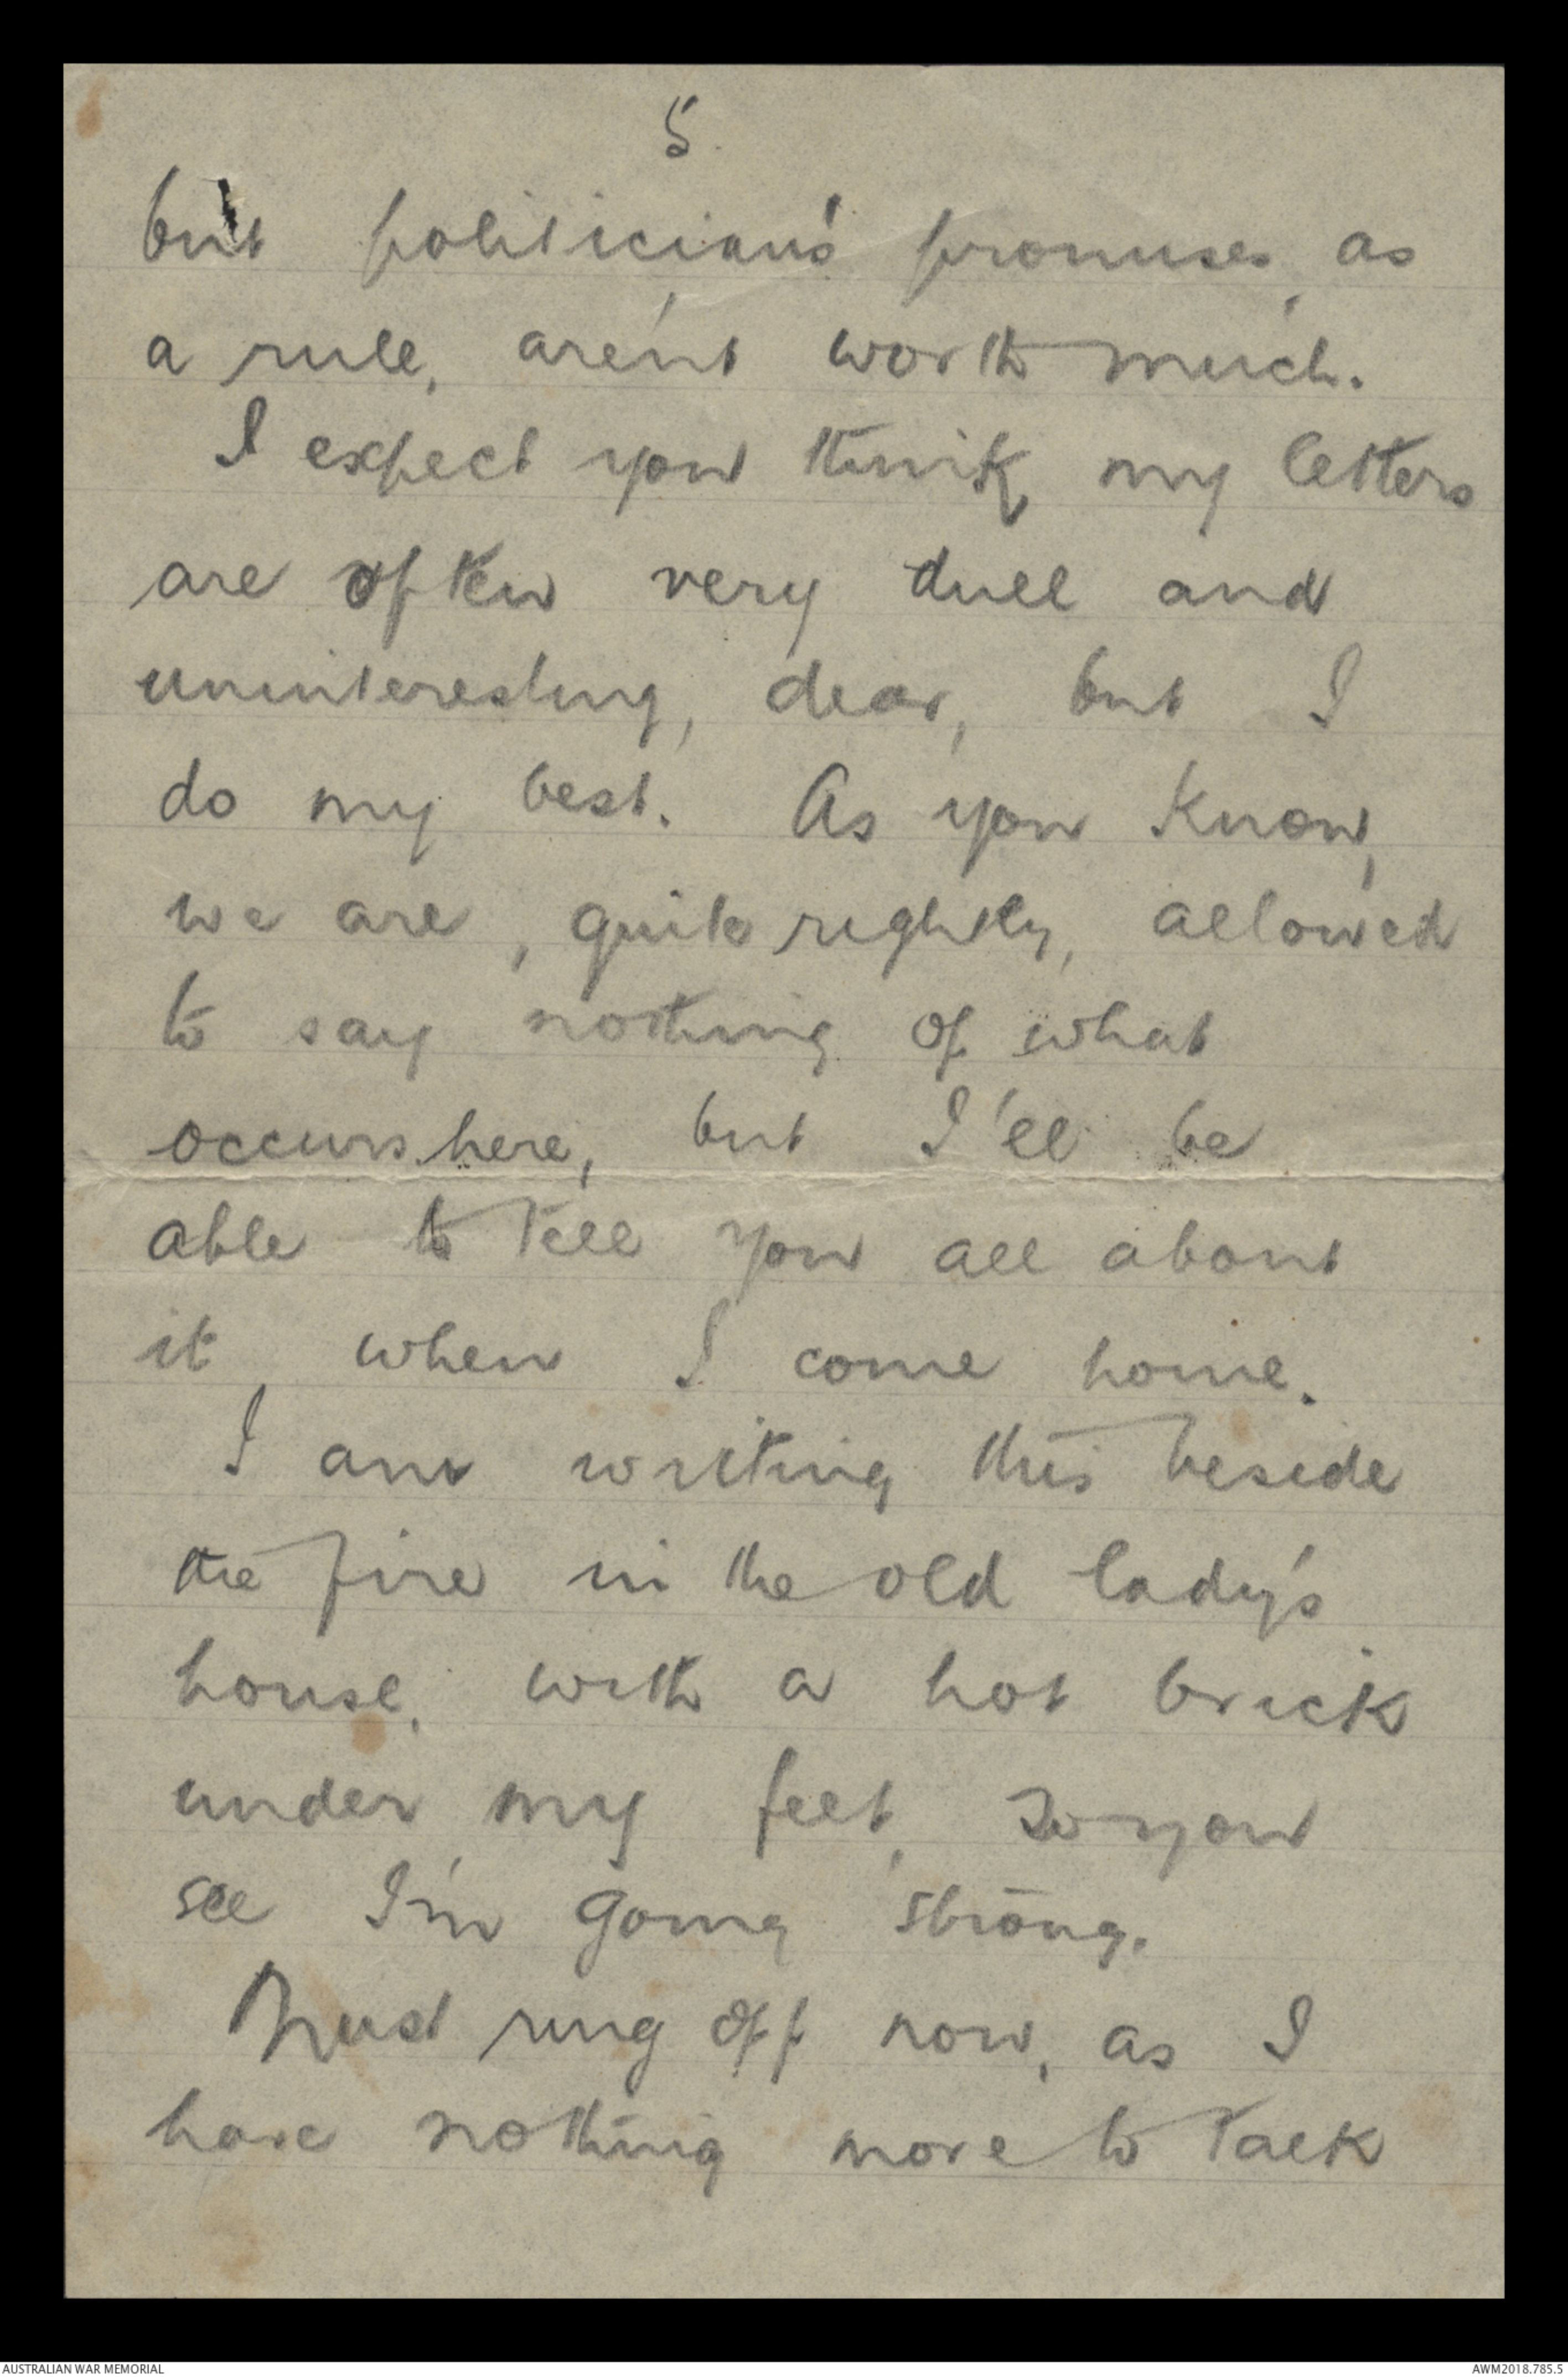 5
but politicians' promises, as
a rule, are'nt worth much.
I expect you think my letters
are often very dull and
uninteresting, dear, but I
do my best. As you know,
we are, quite rightly, allowed
to say nothing of what
occurs here, but I'll be
able to tell you all about
it when I come home.
I am writing this beside
the fire in the old lady's
house, with a hot brick
under my feet, so you
see I'm going strong.
Must ring off now, as I
have nothing more to talk
AUSTRALIAN WAR MEMORIAL
AWM2018.785.5